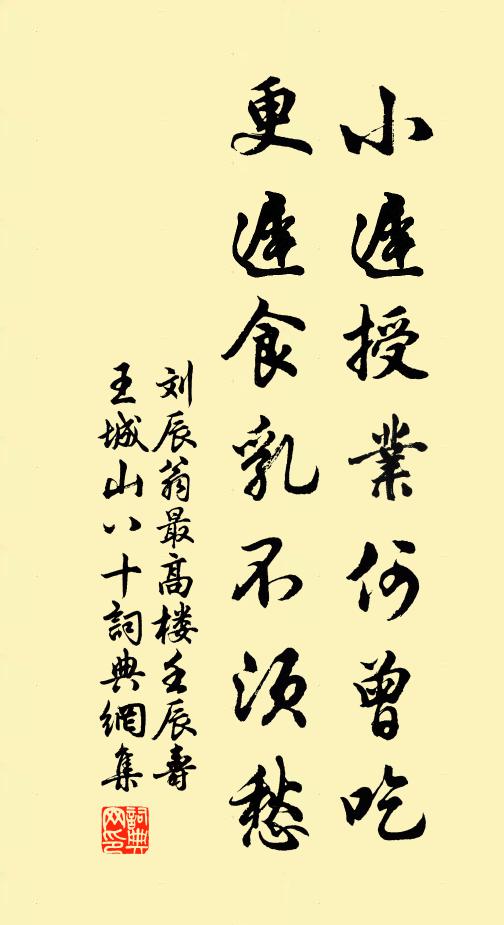 小遲授業何曾吃
更遲食乳不須愁
刘辰翁最高楼壬辰壽
王城山八十詞典網集
詞典網印